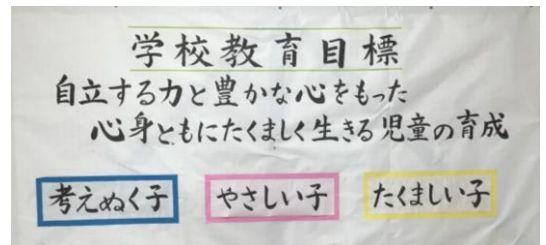 学校教育目標
自立する力と豊かな心をもった
心身ともにたくましく生きる児童の育成
考えぬく子 やさしい子 たくましい子